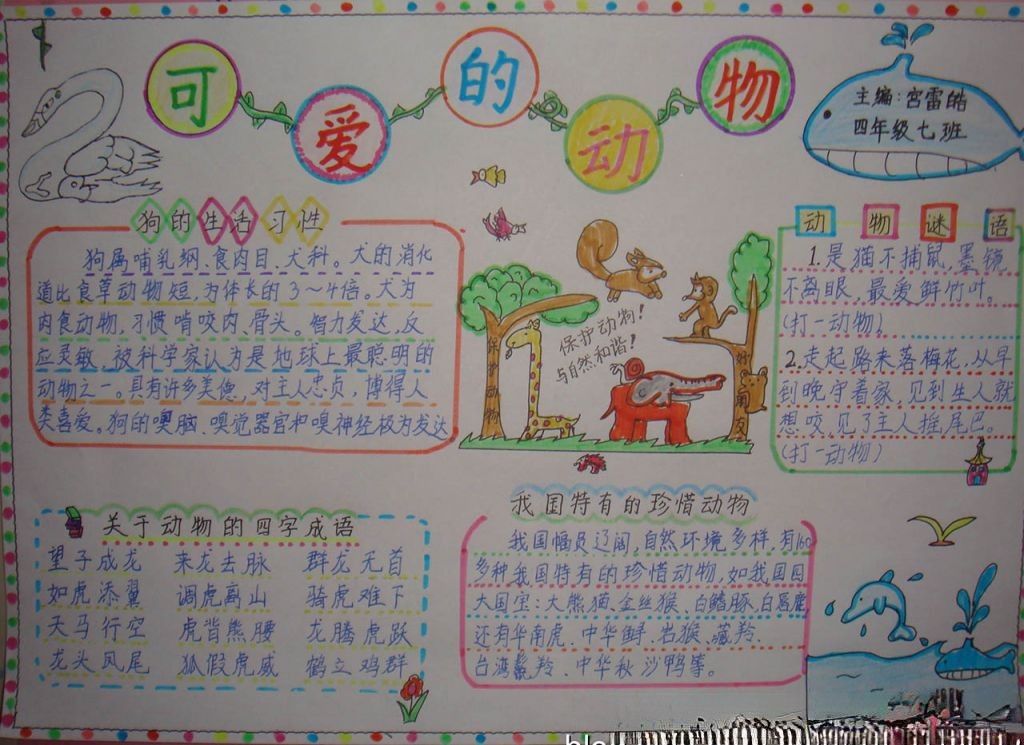 可爱的动物
主编:宫雷皓
四年级七班
狗的生活习性
狗属哺乳纲、食肉目、犬科。犬的消化
道比食草动物短,为体长的3~4倍。犬为
肉食动物,习惯啃咬肉、骨头。智力发达,反
应灵敏,被科学家认为是地球上最聪明的
动物之一。具有许多美德,对主人忠贞,博得人
类喜爱。狗的嗅脑、嗅觉器官和嗅神经极为发达
保护动物!
与自然和谐!
保护动物
动物谜语
1.是猫不捕鼠,墨镜
不离眼,最爱鲜竹叶。
(打一动物)
2.走起路来落梅花,从早
到晚守着家,见到生人就
想咬,见了主人摇尾巴。
(打一动物)
关于动物的四字成语
望子成龙 来龙去脉 群龙无首
如虎添翼 调虎离山 骑虎难下
天马行空 虎背熊腰 龙腾虎跃
龙头凤尾 狐假虎威 鹤立鸡群
我国特有的珍惜动物
我国幅员辽阔,自然环境多样,有160
多种我国特有的珍惜动物,如我国四
大国宝:大熊猫、金丝猴、白鳍豚、白唇鹿
还有华南虎、中华鲟、岩猴、藏羚、
台湾鬣羚、中华秋沙鸭等。